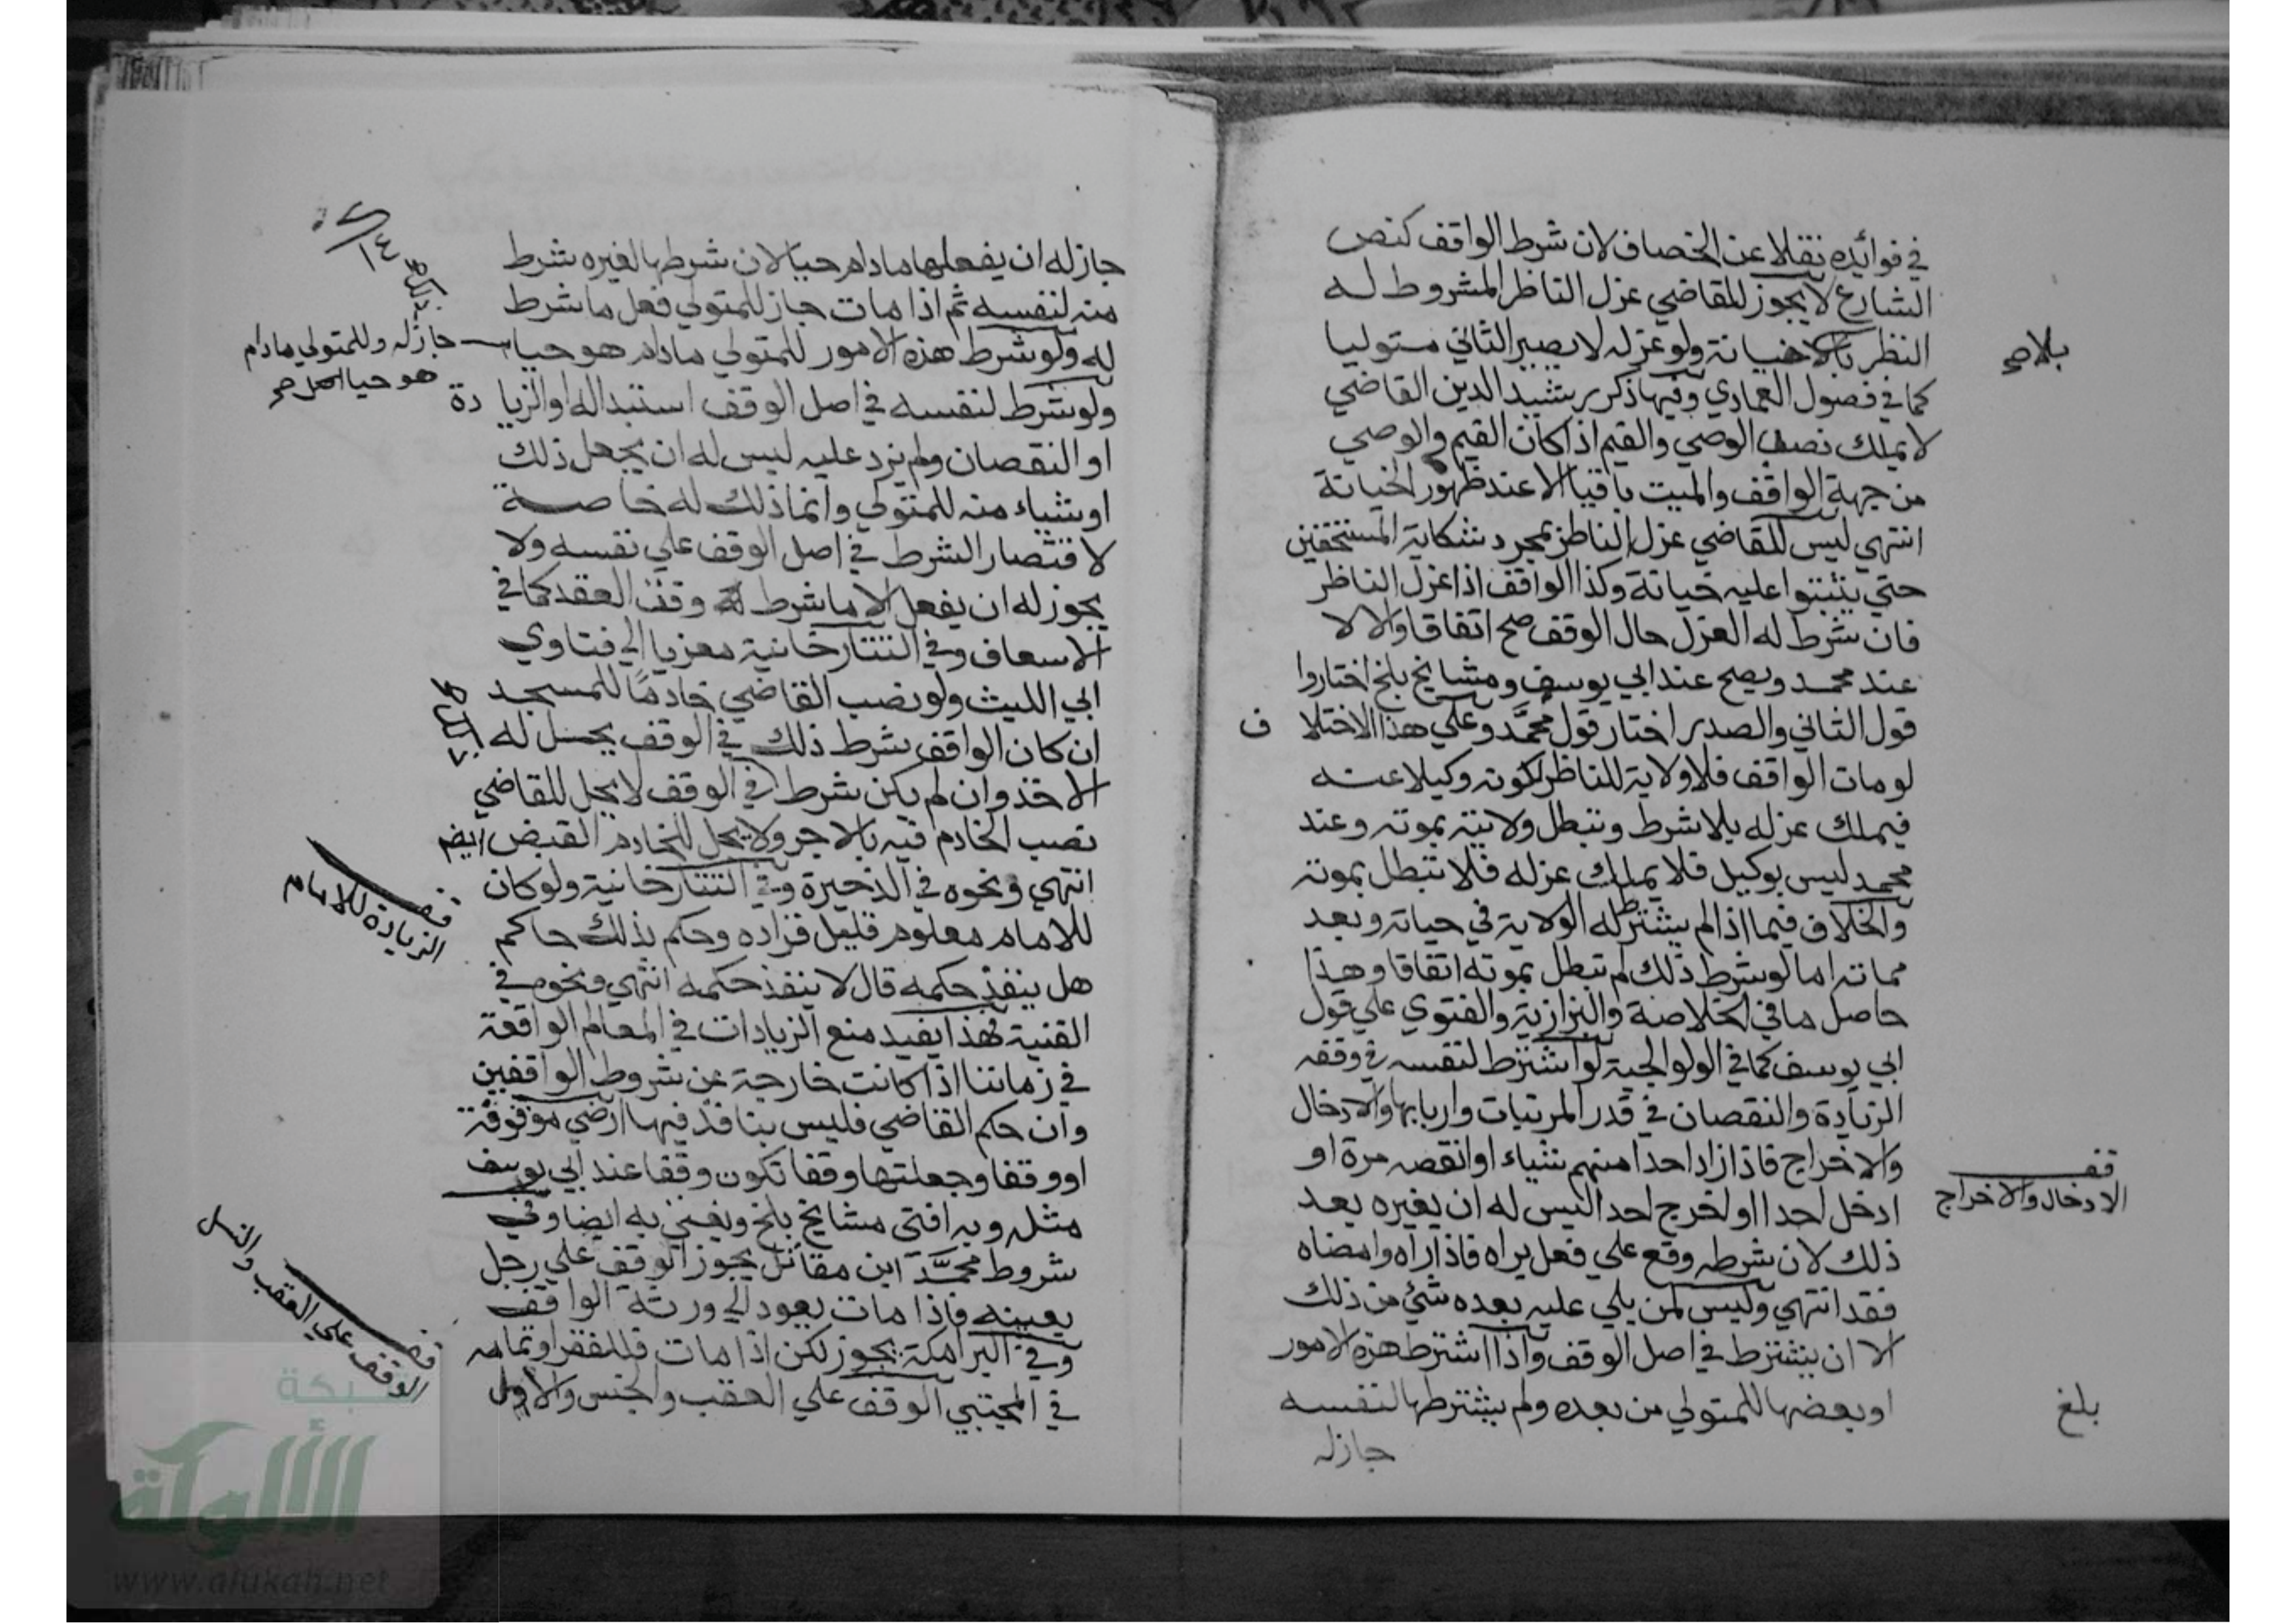 في فوائده نقلا عن الخصاف لان شرط الواقف كنص
الشارع لا يجوز للقاضي عزل الناظر المشروط له
النظر بلا خيانة ولو عزله لا يصير الثاني متوليا
بلا صح
كما في فصول العمادي وفيها ذكر رشيد الدين القاضي
لا يملك نصب الوصي والقيم اذا كان القيم والوصي
من جهة الواقف والميت باقيا الا عند ظهور الخيانة
انتهي ليس للقاضي عزل الناظر بمجرد شكاية المستحقين
حتي يثبتوا عليه خيانة وكذا الواقف اذا عزل الناظر
فان شرط له العزل حال الوقف صح اتفاقا والا لا
عند محمد ويصح عند ابي يوسف ومشايخ بلخ اختاروا
قول الثاني والصدر اختار قول محمد وعلي هذا الاختلا ف
لو مات الواقف فلا ولاية للناظر لكونه وكيلا عنه
فيملك عزله بلا شرط وتبطل ولايته بموته وعند
محمد ليس بوكيل فلا يملك عزله فلا تبطل بموته
والخلاف فيما اذا لم يشترط له الولاية في حياته وبعد
مماته اما لو شرط ذلك لم تبطل بموته اتفاقا وهذا
حاصل ما في الخلاصة والبزازية والفتوي علي قول
ابي يوسف كما في الولوالجية لو اشترط لنفسه في وقفه
الزيادة والنقصان في قدر المرتبات واربابها والادخال
والاخراج فاذا زاد احدا منهم شياء او انقصه مرة او
قف
الادخال والاخراج
ادخل احدا او اخرج احدا ليس له ان يغيره بعد
ذلك لان شرطه وقع علي فعل يراه فاذا راه وامضاه
فقد انتهي وليس لمن يلي عليه بعده شئ من ذلك
الا ان يشترط في اصل الوقف واذا اشترط هذه الامور
او بعضها للمتولي من بعده ولم يشترطها لنفسه
بلغ
جاز له
جاز له ان يفعلها مادام حيا لان شرطها لغيره شرط
منه لنفسه ثم اذا مات جاز للمتولي فعل ما شرط
له ولو شرط هذه الامور للمتولي مادام هو حيا
جاز له وللمتولي مادام
هو حيا صح
ولو شرط لنفسه في اصل الوقف استبداله او الزيا دة
او النقصان ولم يزد عليه ليس له ان يجعل ذلك
او شياء منه للمتولي وانما ذلك له خاصة
لاقتصار الشرط في اصل الوقف علي نفسه ولا
يجوز له ان يفعل الا ما شرط له وقت العقد كما في
الاسعاف وفي التتارخانية معزيا الي فتاوي
ابي الليث ولو نصب القاضي خادما للمسجد
ان كان الواقف شرط ذلك في الوقف يحل له
الاخذ وان لم يكن شرط في الوقف لا يحل للقاضي
نصب الخادم فيه بالاجر ولا يحل للخادم القبض ايضم
انتهي ونحوه في الذخيرة وفي التتارخانية ولو كان
قف
الزيادة للامام
للامام معلوم قليل فزاده وحكم بذلك حاكم
هل ينفذ حكمه قال لا ينفذ حكمه انتهي ونحوه في
القنية فهذا يفيد منع الزيادات في المعالم الواقعة
في زماننا اذا كانت خارجة عن شروط الواقفين
وان حكم القاضي فليس بنافذ فيها ارضي موقوفة
او وقفا وجعلتها وقفا تكون وقفا عند ابي يوسف
مثله وبه افتي مشايخ بلخ ويفتي به ايضا وفي
شروط محمد ابن مقاتل يجوز الوقف علي رجل
بعينه فاذا مات يعود الي ورثة الواقف
وفي البرامكة يجوز لكن اذا مات فللفقرا وتمامه
في المجتبي الوقف علي العقب والجنس والاول
قف
الوقف علي العقب والنسل
شبكة
الألوكة
www.alukah.net